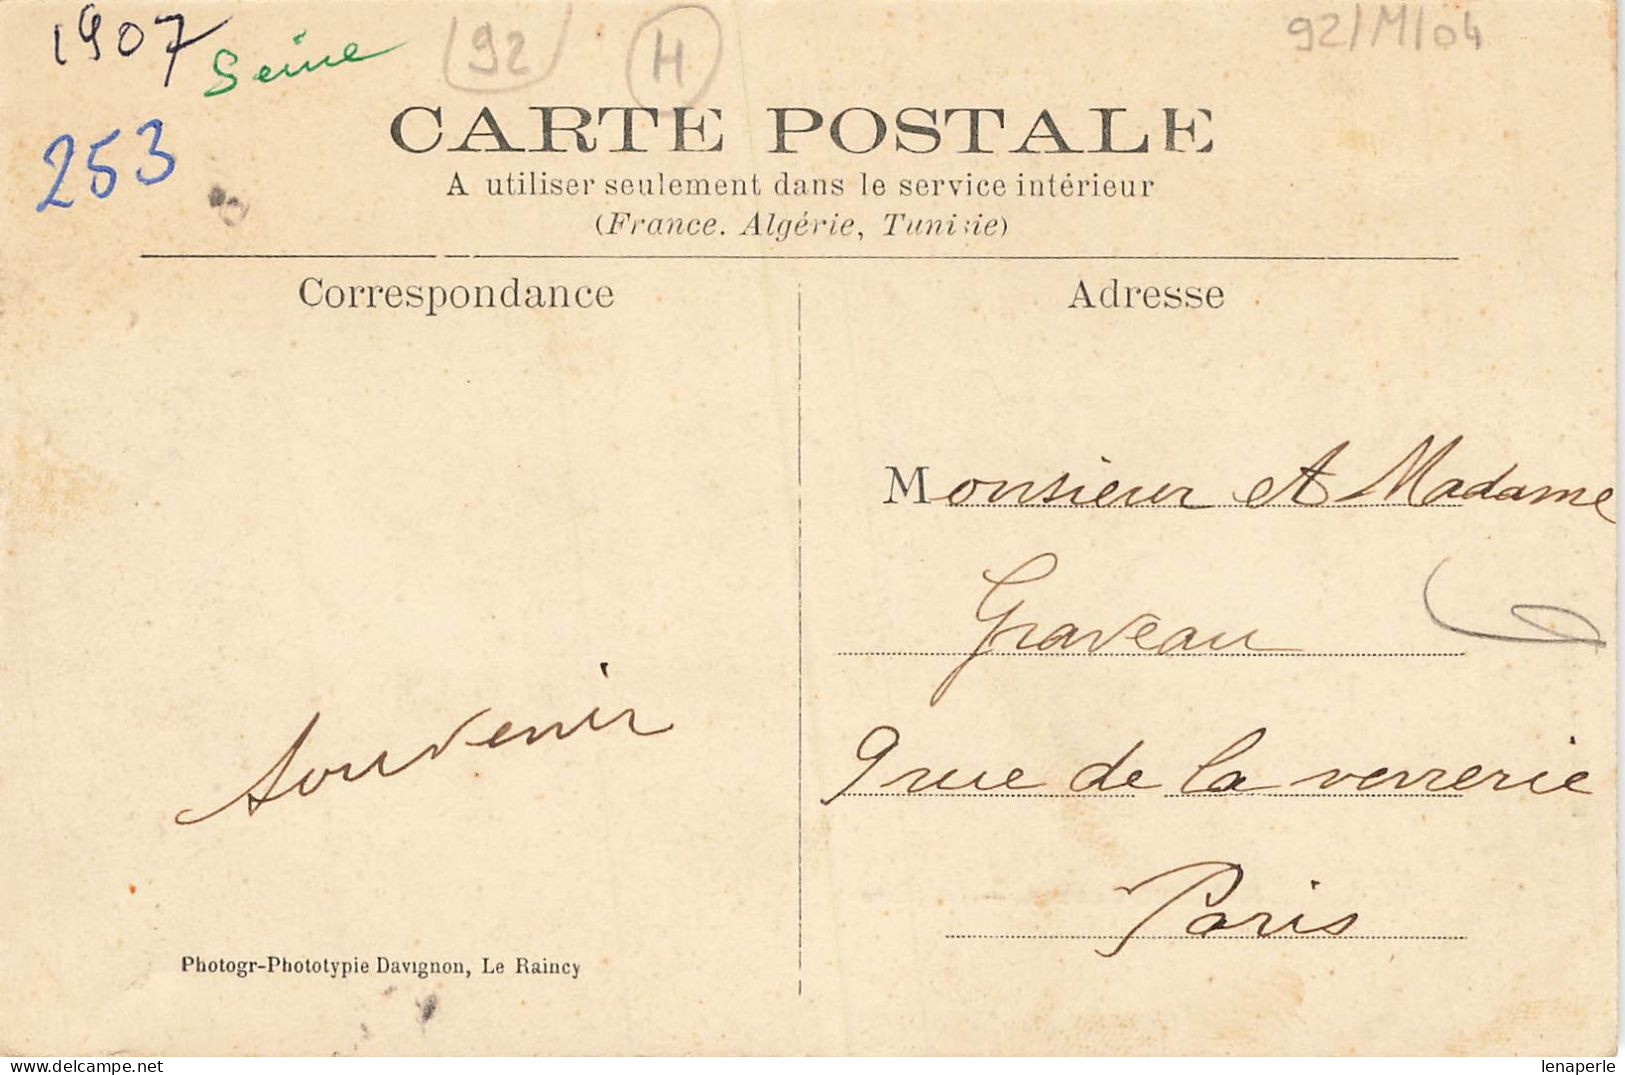 1907 Seine 92 H 92/M/04
253
CARTE POSTALE
A utiliser seulement dans le service intérieur
(France. Algérie, Tunisie)
Correspondance
Adresse
Monsieur et Madame
Graveau
9 rue de la verrerie
Paris
Souvenir
Photogr-Phototypie Davignon, Le Raincy
www.delcampe.net
lenaperle